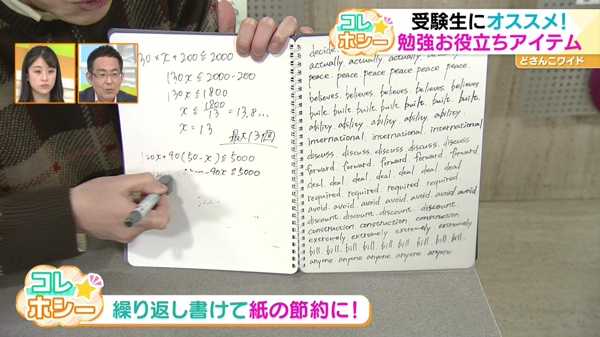 コレ
ホシー
受験生にオススメ!
勉強お役立ちアイテム
どさんこワイド
130×x+200≦2000
130x≦2000-200
130x≦1800
x≦1800/13=13,8...
x=13
最大13個
120x+90(50-x)≦5000
-90x≦5000
decide
actually actually
peace. peace peace peace peace peace.
believes. believes believes. believes believes
built. built built. built built. built.
ability. ability ability. ability ability.
international. international. international
discuss. discuss. discuss discuss. discuss
forward. forward. forward forward. forward.
deal. deal deal. deal. deal. deal. deal
required. required required required
avoid. avoid avoid. avoid avoid avoid avoid
discount. discount discount. discount
construction construction. construction
extremely extremely extremely extremely
bill. bill. bill. bill. bill. bill. bill.
anyone anyone anyone. anyone anyone
コレ
ホシー
繰り返し書けて紙の節約に!